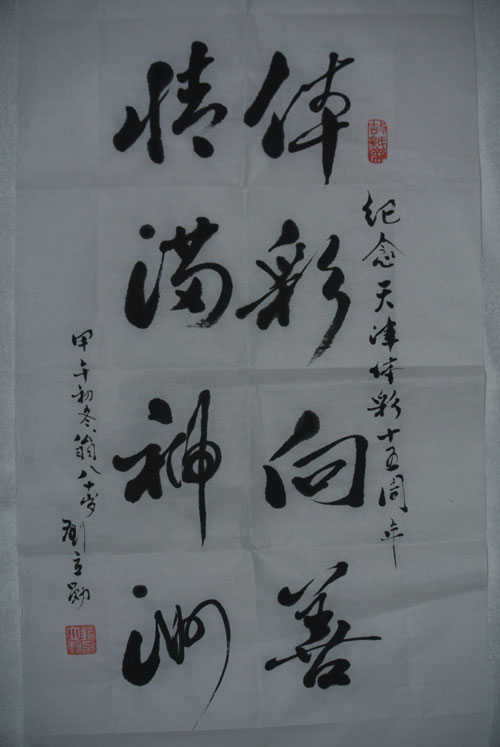 纪念天津体彩十五周年
体彩向善
情满神洲
甲午初冬翁八十岁刘立勋